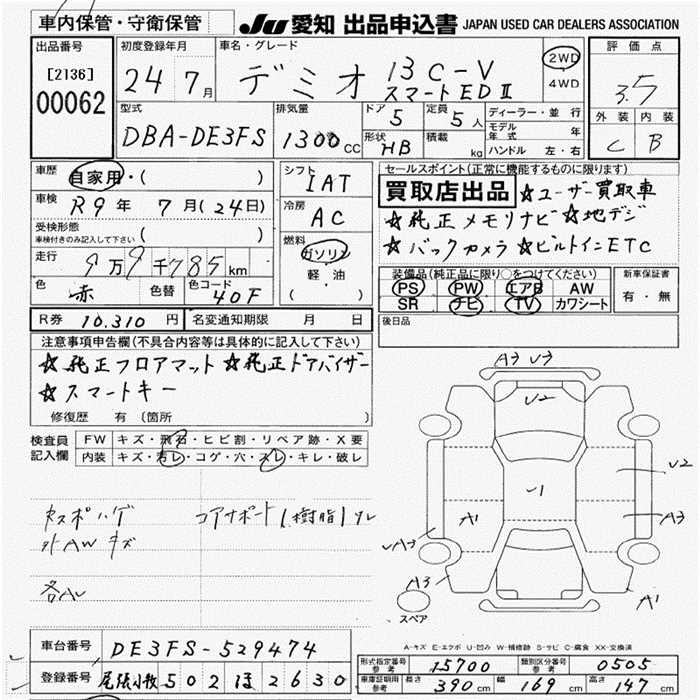 車内保管・守衛保管 JU 愛知 出品申込書 JAPAN USED CAR DEALERS ASSOCIATION
出品番号 [2136] 00062
初度登録年月 24年 7月
車名・グレード デミオ 13C-V スマートEDⅡ
2WD ・ 4WD
評価点 3.5
外装 C 内装 B
型式 DBA-DE3FS
排気量 1300 CC
ドア 5 定員 5人
形状 HB 積載 kg
ディーラー・並行
モデル年式 年
ハンドル 左・右
車歴 自家用・( )
車検 R9年 7月(24日)
受検形態 車検付きのみ記入して下さい ( )
走行 9万9千785km
色 赤 色替 色コード 40F
シフト IAT
冷房 AC
燃料 ガソリン ・ 軽油 ( )
セールスポイント(正常に機能するものに限ります)
買取店出品 ☆ユーザー買取車
☆純正メモリナビ☆地デジ
☆バックカメラ☆ビルトインETC
装備品(純正品に限り○をつけてください)
PS PW エアB AW
SR ナビ TV カワシート
新車保証書 有・無
R券 10.310 円 名変通知期限 月 日
後日品
注意事項申告欄(不具合内容等は具体的に記入して下さい)
☆純正フロアマット☆純正ドアバイザー
☆スマートキー
修復歴 有 (箇所 )
検査員記入欄
FW キズ・飛石・ヒビ割・リペア跡・X要
内装 キズ・汚レ・コゲ・穴・スレ・キレ・破レ
コアサポート(樹脂)
外AWキズ
A3 U3
U2
U2
-1
A1
A3
A3
A3
A1
スペア
A-キズ E-エクボ U-凹み W-補修跡 S-サビ C-腐食 XX-交換済
車台番号 DE3FS-529474
登録番号 尾張小牧502ほ2630
形式指定番号 参考 15700 類別区分番号 参考 0505
車庫証明用 参考 長さ 390 cm 幅 169 cm 高さ 147 cm